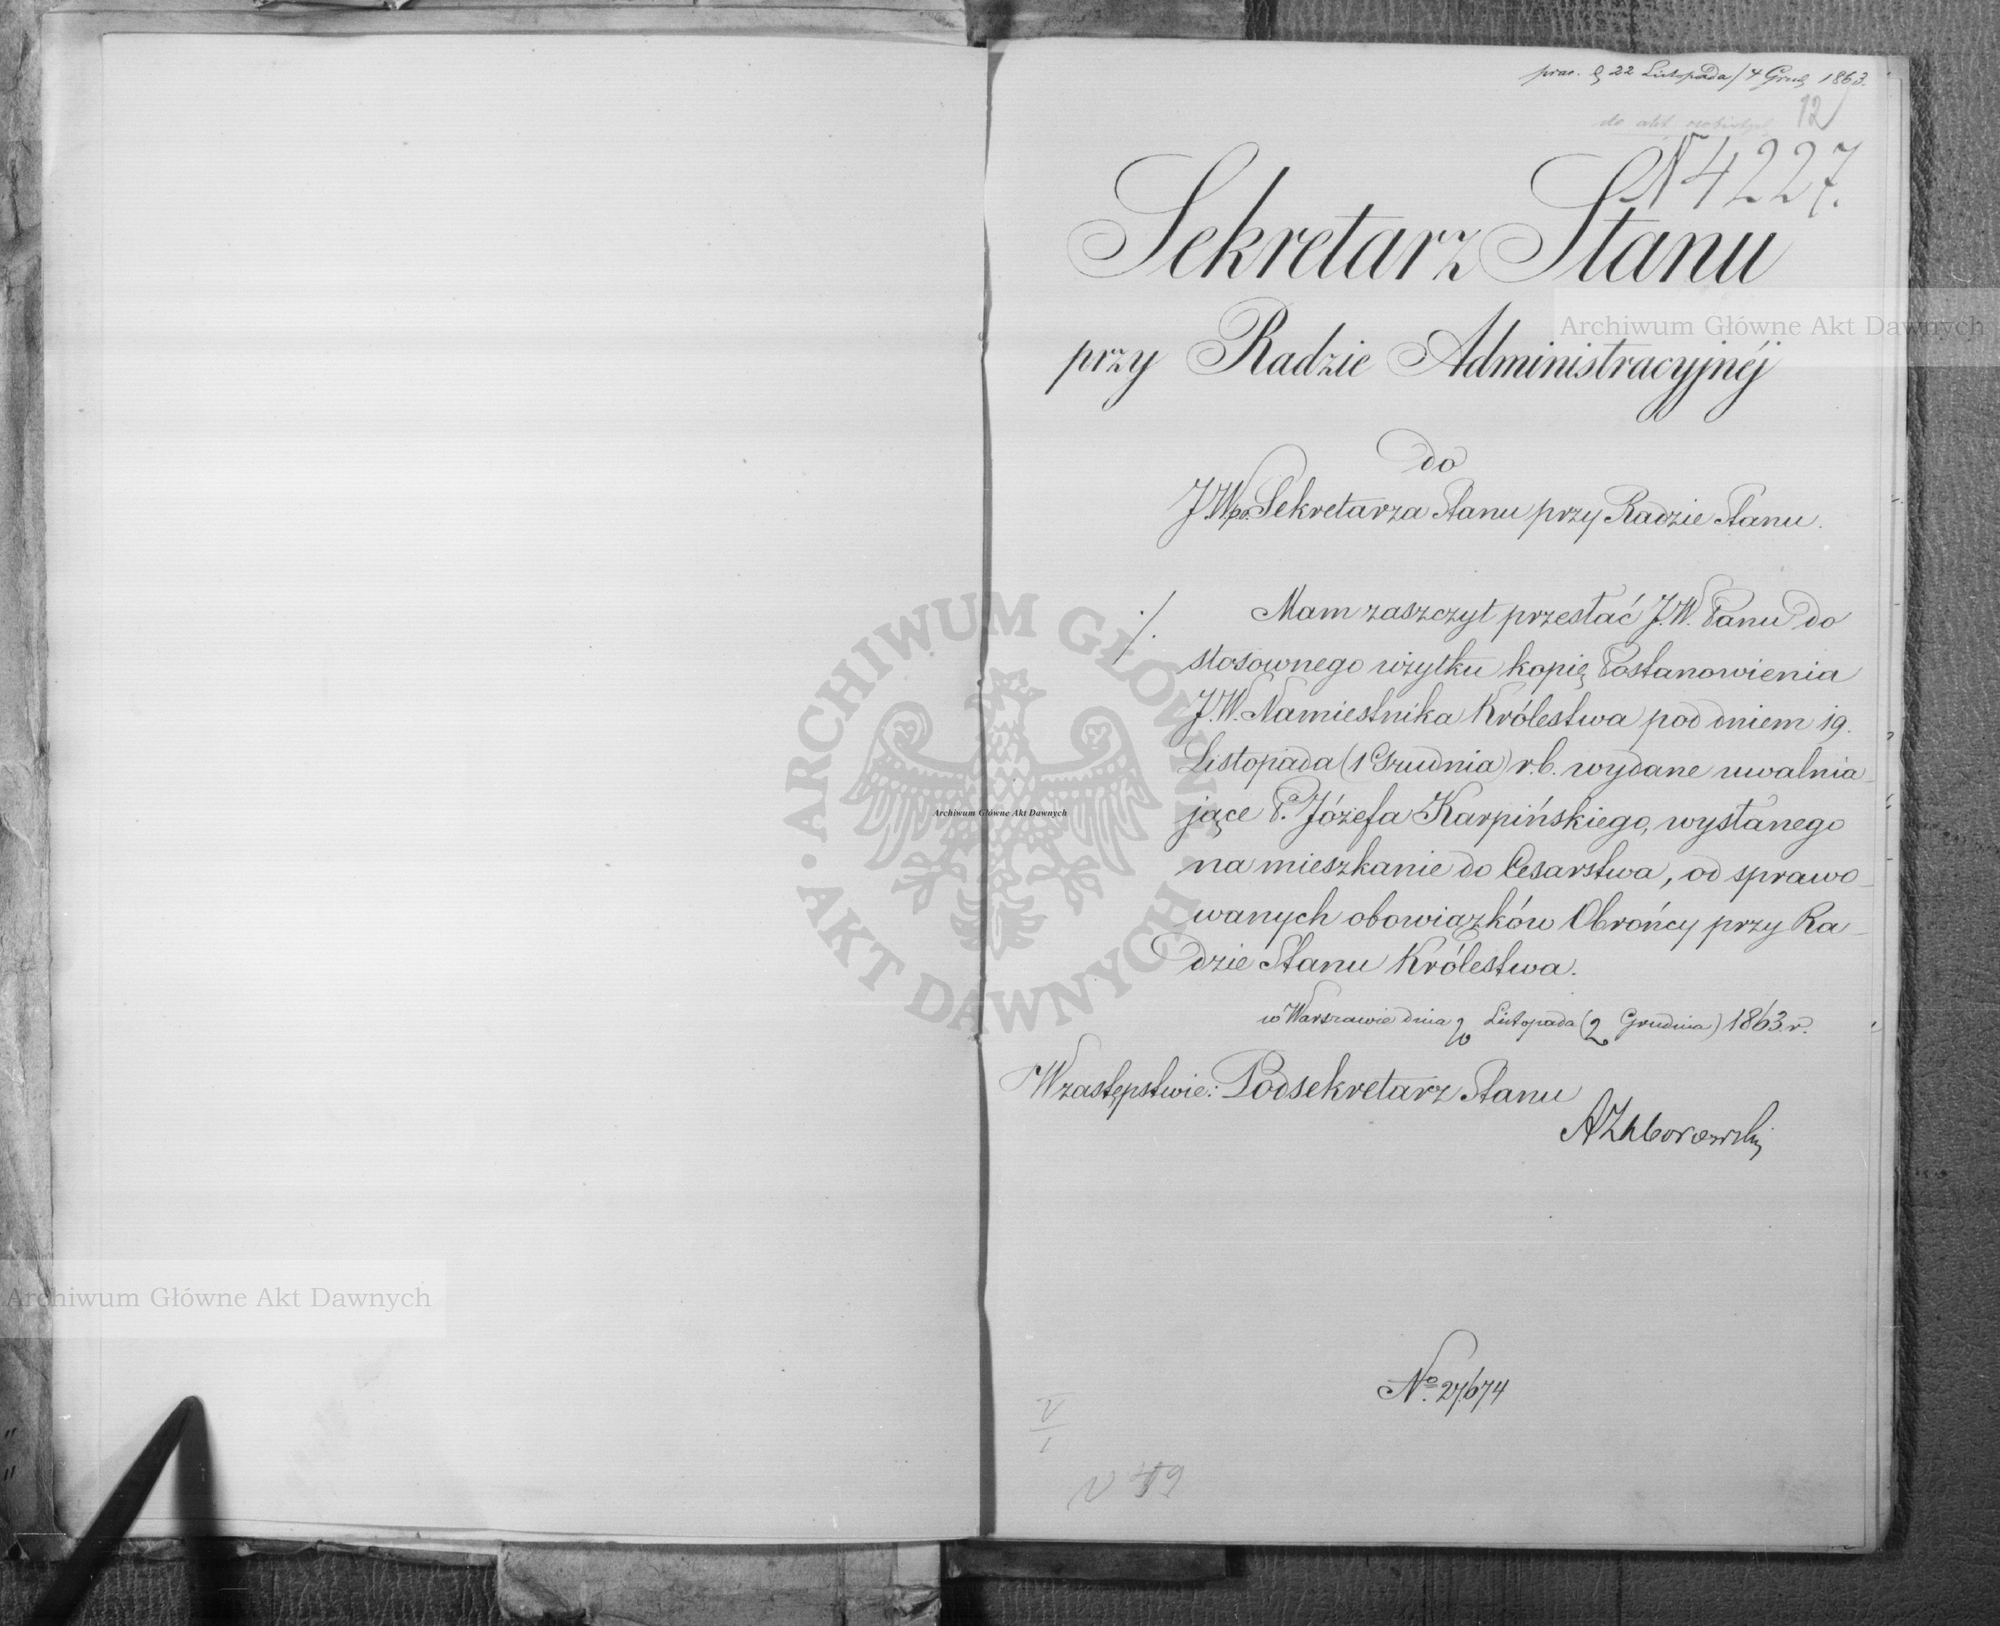 22 Listopada / 4 Grud 1863.
12
do akt osobistych
N 4227.
Sekretarz Stanu
przy Radzie Administracyjnéj
do
J.W. po. Sekretarza Stanu przy Radzie Stanu.
./. Mam zaszczyt przesłać J.W. Panu do
stosownego użytku kopię Postanowienia
J.W. Namiestnika Królestwa pod dniem 19.
Listopada (1 Grudnia) r.b. wydane uwalnia
jące P. Józefa Karpińskiego, wysłanego
na mieszkanie do Cesarstwa, od sprawo
wanych obowiązków Obrońcy przy Ra
dzie Stanu Królestwa.
w Warszawie dnia 20 Listopada (2 Grudnia) 1863 r.
W zastępstwie: Podsekretarz Stanu
AZaborowski
No. 27.674
Archiwum Główne Akt Dawnych
Archiwum Główne Akt Dawnych
Archiwum Główne Akt Dawnych
ARCHIWUM GŁÓWNE · AKT DAWNYCH ·